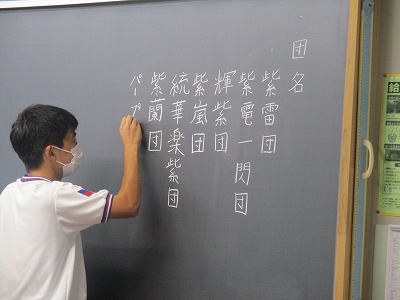 団名
紫雷団
紫電一閃団
輝紫団
紫嵐団
統華楽紫団
紫蘭団
パープ
給